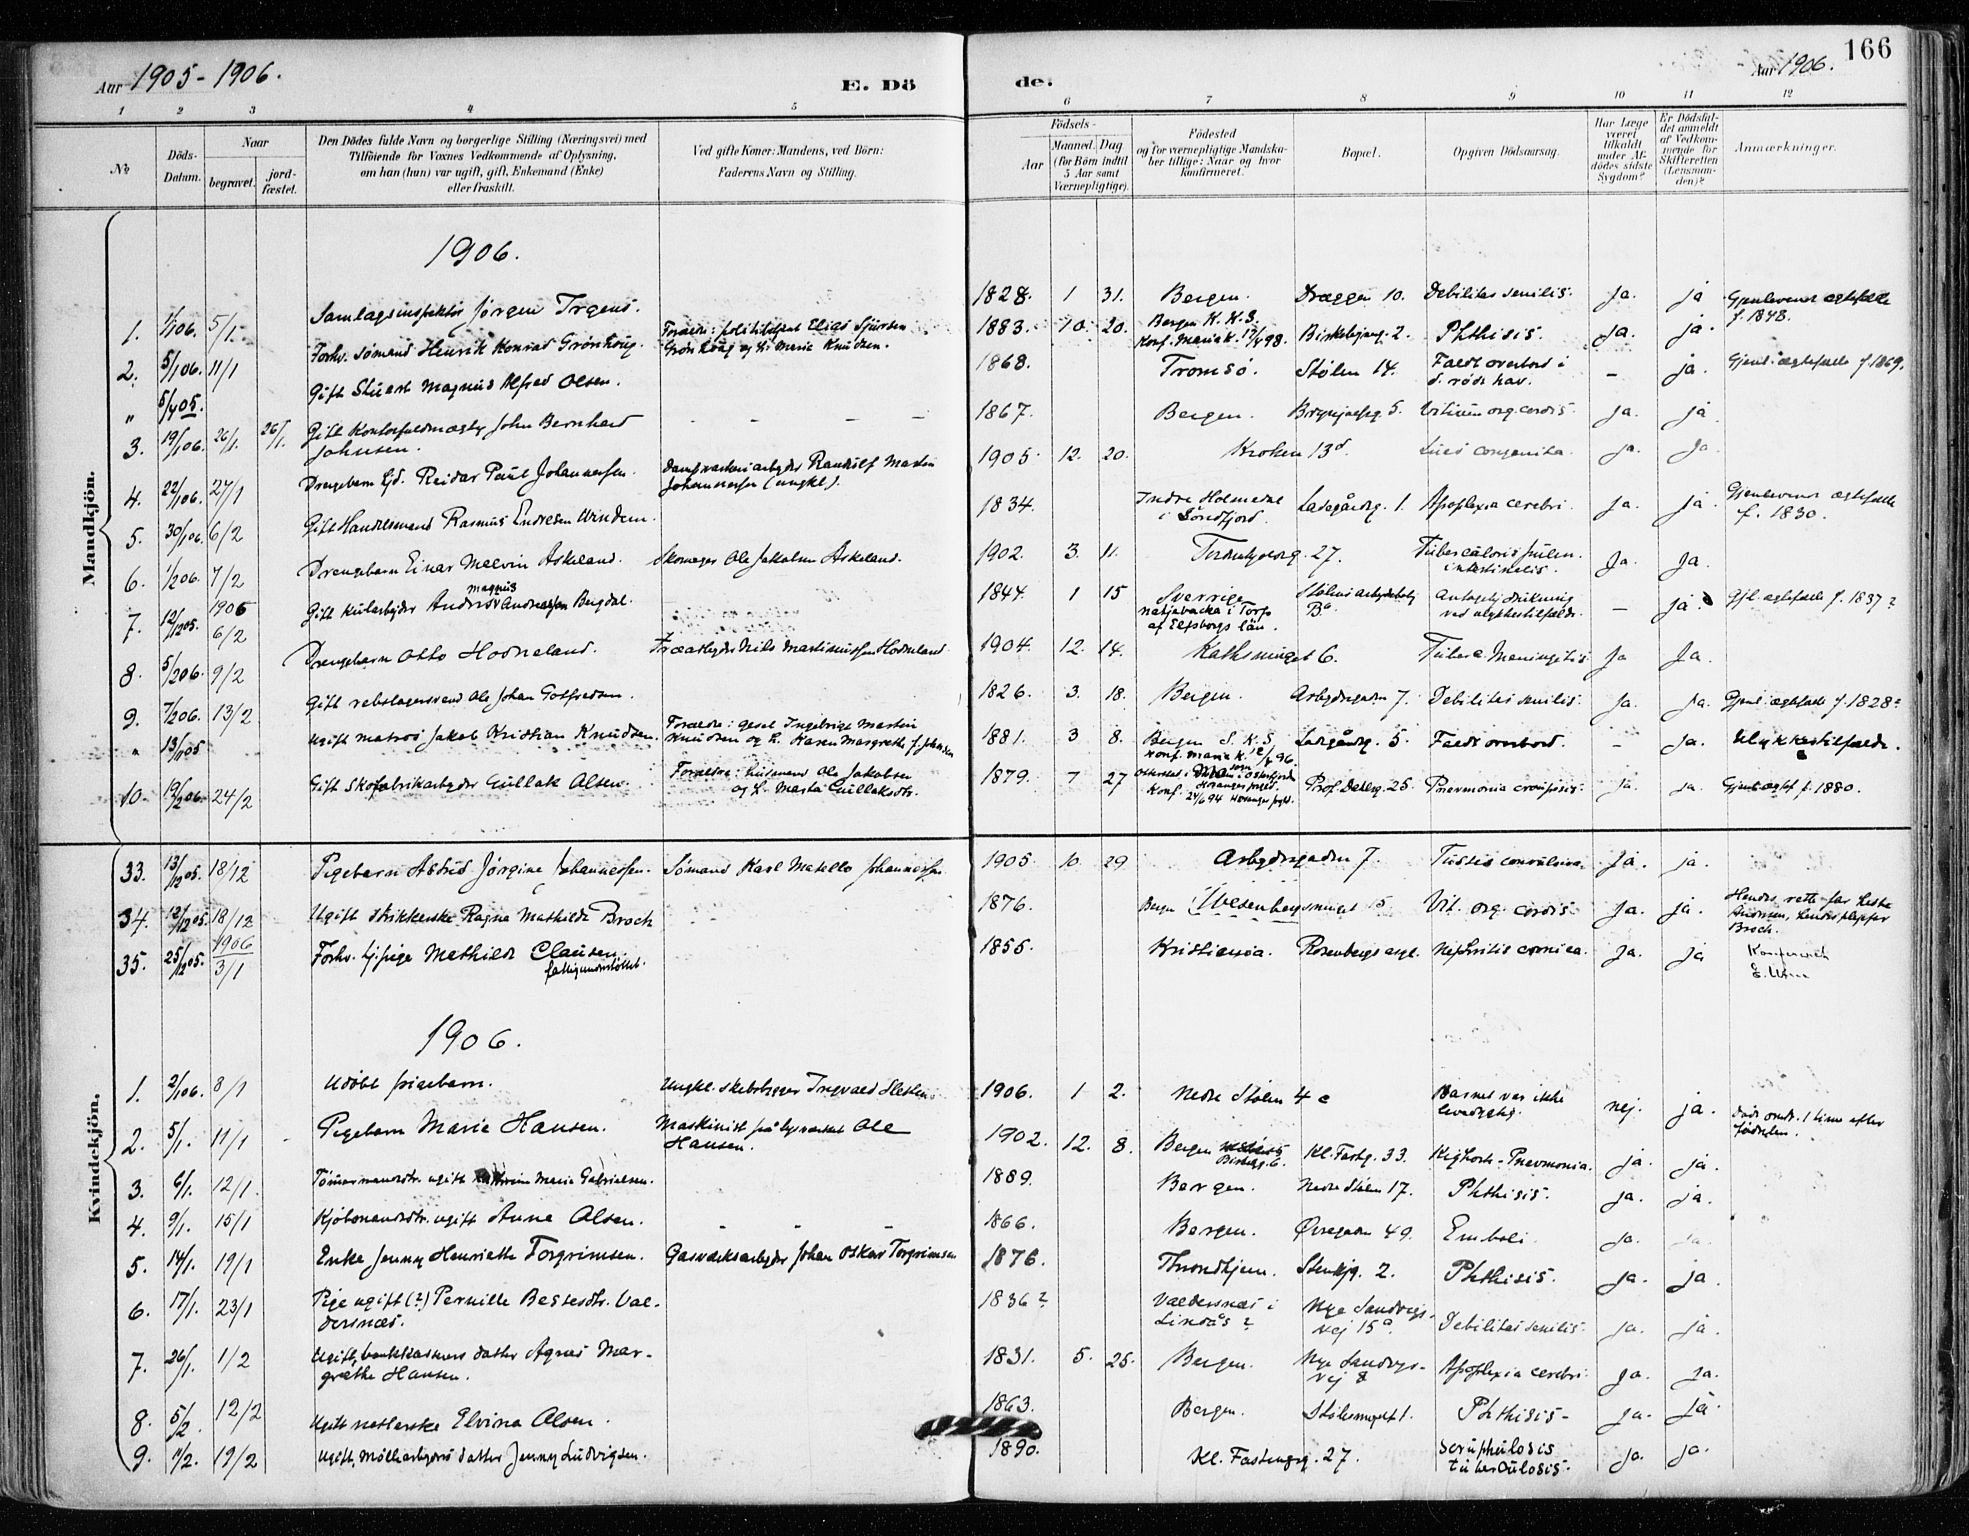 166
Aar 1905-1906.
E. Dö
de.
Aar 1906.
1 2 3 4 5 6 7 8 9 10 11 12
No.
Döds-Datum.
Naar
begravet.
jordfæstet.
Den Dödes fulde Navn og borgerlige Stilling (Næringsvei) med
Tilföiende for Voxnes Vedkommende af Oplysning,
om han (hun) var ugift, gift, Enkemand (Enke)
eller fraskilt.
Ved gifte Koner: Mandens, ved Börn:
Faderens Navn og Stilling.
Födsels-
Aar
Maaned. Dag
(for Börn indtil
5 Aar samt
Værnepligtige).
Födested
og for værnepligtige Mandskaber tillige: Naar og hvor
konfirmeret.
Bopæl.
Opgiven Dödsaarsag.
Har Læge
været
tilkaldt
under Afdödes sidste
Sygdom?
Er Dödsfaldet anmeldt
af Vedkommende for
Skifteretten
(Lensmanden)?
Anmærkninger.
Mandkjön.
1906.
1. 1/1 06. 5/1. Samlagsinspektör Jörgen Irgens. 1828. 1 31. Bergen. Dræggen 10. Debilitas senilis. Ja. ja Gjenlevende ægtefælle f. 1848.
2. 5/1 06. 11/1 Forhv. sömand Henrik Konrad Grönhoug. Forældre: politibetjent Elias Sjursen Grönhoug og h. Marie Knudsen. 1883. 10. 20. Bergen K. K. S. Konf. Mariak. 17/4 98. Birkebeinerg. 2. Phthisis. Ja. ja.
" 5/4 05. Gift Stuert Magnus Alfred Olsen. 1868. Tromsö. Stölen 14. Faldt overbord i d. röde hav. - ja. Gjenl. ægtefælle f. 1869.
3. 19/1 06. 26/1. 26/1. Gift Kontorfuldmægtig John Bernhard Johnsen. - - - 1867. Bergen. 5. Vitium org. cordis. Ja. ja
4. 22/1 06. 27/1 Drengebarn Reidar Paul Johannessen. Randulf Martin Johannessen (ungkl.). 1905. 12. 20. Kroken 13 d. Lues congenita. Ja. Ja
5. 30/1 06. 6/2 Gift Handelsmand Rasmus Endresen Winden. 1834. Indre Holmedal i Söndfjord. Ladegårdsg. 1. Apoplexia cerebri. Ja. ja Gjenlevende ægtefælle f. 1830.
6. 1/2 06. 7/2 Drengebarn Einar Melvin Askeland. Skomager Ole Jakobsen Askeland. 1902. 3. 11. 27. Tuberculosis pulm. intestinalis. Ja. Ja.
7. 12/12 05. 1906 6/2 Gift Andreas magnus Andreassen Bergdal. 1844. 1 15 Sverrige i Torpa af Elfsborgs län. Stölens arbeiderbolig B. ved ulykkestilfælde. - ja. Gjl. ægtefælle f. 1837?
8. 5/2 06. 9/2 Drengebarn Otto Hodneland. Træarbeider Nils Martinussen Hodneland. 1904. 12. 14. 6. Tuberc. Meningitis. Ja Ja.
9. 7/2 06. 13/2 Gift rebslagersvend Ole Johan Gotfredsen. 1826. 3. 18. Bergen. Arbeidergaden 7. Debilitas senilis. Ja. Ja. Gjenl. ægtefælle f. 1828?
" 13/ 05 Ugift matros Jakob Kristian Knudsen. Forældre: Ingebrigt Martin Knudsen og h. Karen Margrethe f. Johnsen 1881. 3 8. Bergen S. K. S. Konf. Mariak. 96. Ladegårdsg. 5. Faldt overbord. - ja. Ulykkestilfælde.
10. 19/2 06. 24/2 Gift Skofabrikarbeider Gullak Olsen. Forældre: husmand Ole Jakobsen og h. Marta Gullaksdtr. 1879. 7 27 24/6 94 25. Pneumonia crouposa. Ja. ja. Gjenl. ægtef. f. 1880.
Kvindekjön.
33. 13/12 05. 18/12 Pigebarn Astrid Jörgine Johannessen. Sömand Karl Johannessen. 1905. 10. 29 Arbeidergaden 7. Tussis convulsiva. Ja. ja.
34. 12/12 05. 18/12 Ugift strikkerske Ragna Mathilde Broch 1876. Bergen Wesenbergsmuget 15 Vit. org. cordis. Ja. ja. Hendes rette far Broch.
35. 25/12 05. 1906 3/1 Forhv. tj.pige Mathilde Clausen. fattigunderstöttet. 1855. Kristiania. Rosenbergs Nephritis cronica. Ja. ja
1906.
1. 2/1 06. 8/1 Udöbt pigebarn. Ungkl. Ingvald 1906. 1 2. Nedre Stölen 4 c Barnet var ikke levedygtig. nej. ja. Döde 1 time efter födselen.
2. 5/1. 11/1 Pigebarn Marie Hansen. Maskinist Ole Hansen. 1902. 12. 8. Bergen Kl. 33. Kighoste-Pneumonia. ja. ja.
3. 6/1. 12/1. Tömmermandsdtr. ugift Marie Gabrielsen. 1889. Bergen. Nedre Stölen 17. Phthisis. Ja. ja.
4. 9/1. 15/1 Kjöbmandsdtr. ugift Anna Olsen. - " - 1866. Bergen. Övregaden 49. Emboli. Ja. Ja.
5. 14/1. 19/1 Enke Jenny Henriette Torgrimsen. Gasværksarbeider Johan Oskar Torgrimsen 1876. Throndhjem. 2. Phthisis. Ja. ja.
6. 17/1. 23/1 Pige ugift (?) Pernille Valdersnæs. 1836? Valdersnæs i Lindås? Nye Sandvigsvej 15 a. Debilitas senilis. Ja. ja.
7. 26/1. 1/2 Ugift, datter Agnes Margrethe Hansen. 1831. 5. 25. Bergen. Nye Sandvigsvej 8 Apoplexia cerebri. Ja. Ja.
8. 5/2. 12/2 Ugift Elvina Olsen. 1863. Bergen. Stölesmuget 1. Phthisis - Ja. ja.
9. 11/2. 19/2 Ugift, datter Jenny Ludvigsen. 1890. Kl. 27. Scruphulosis tuberculosis. Ja. ja.